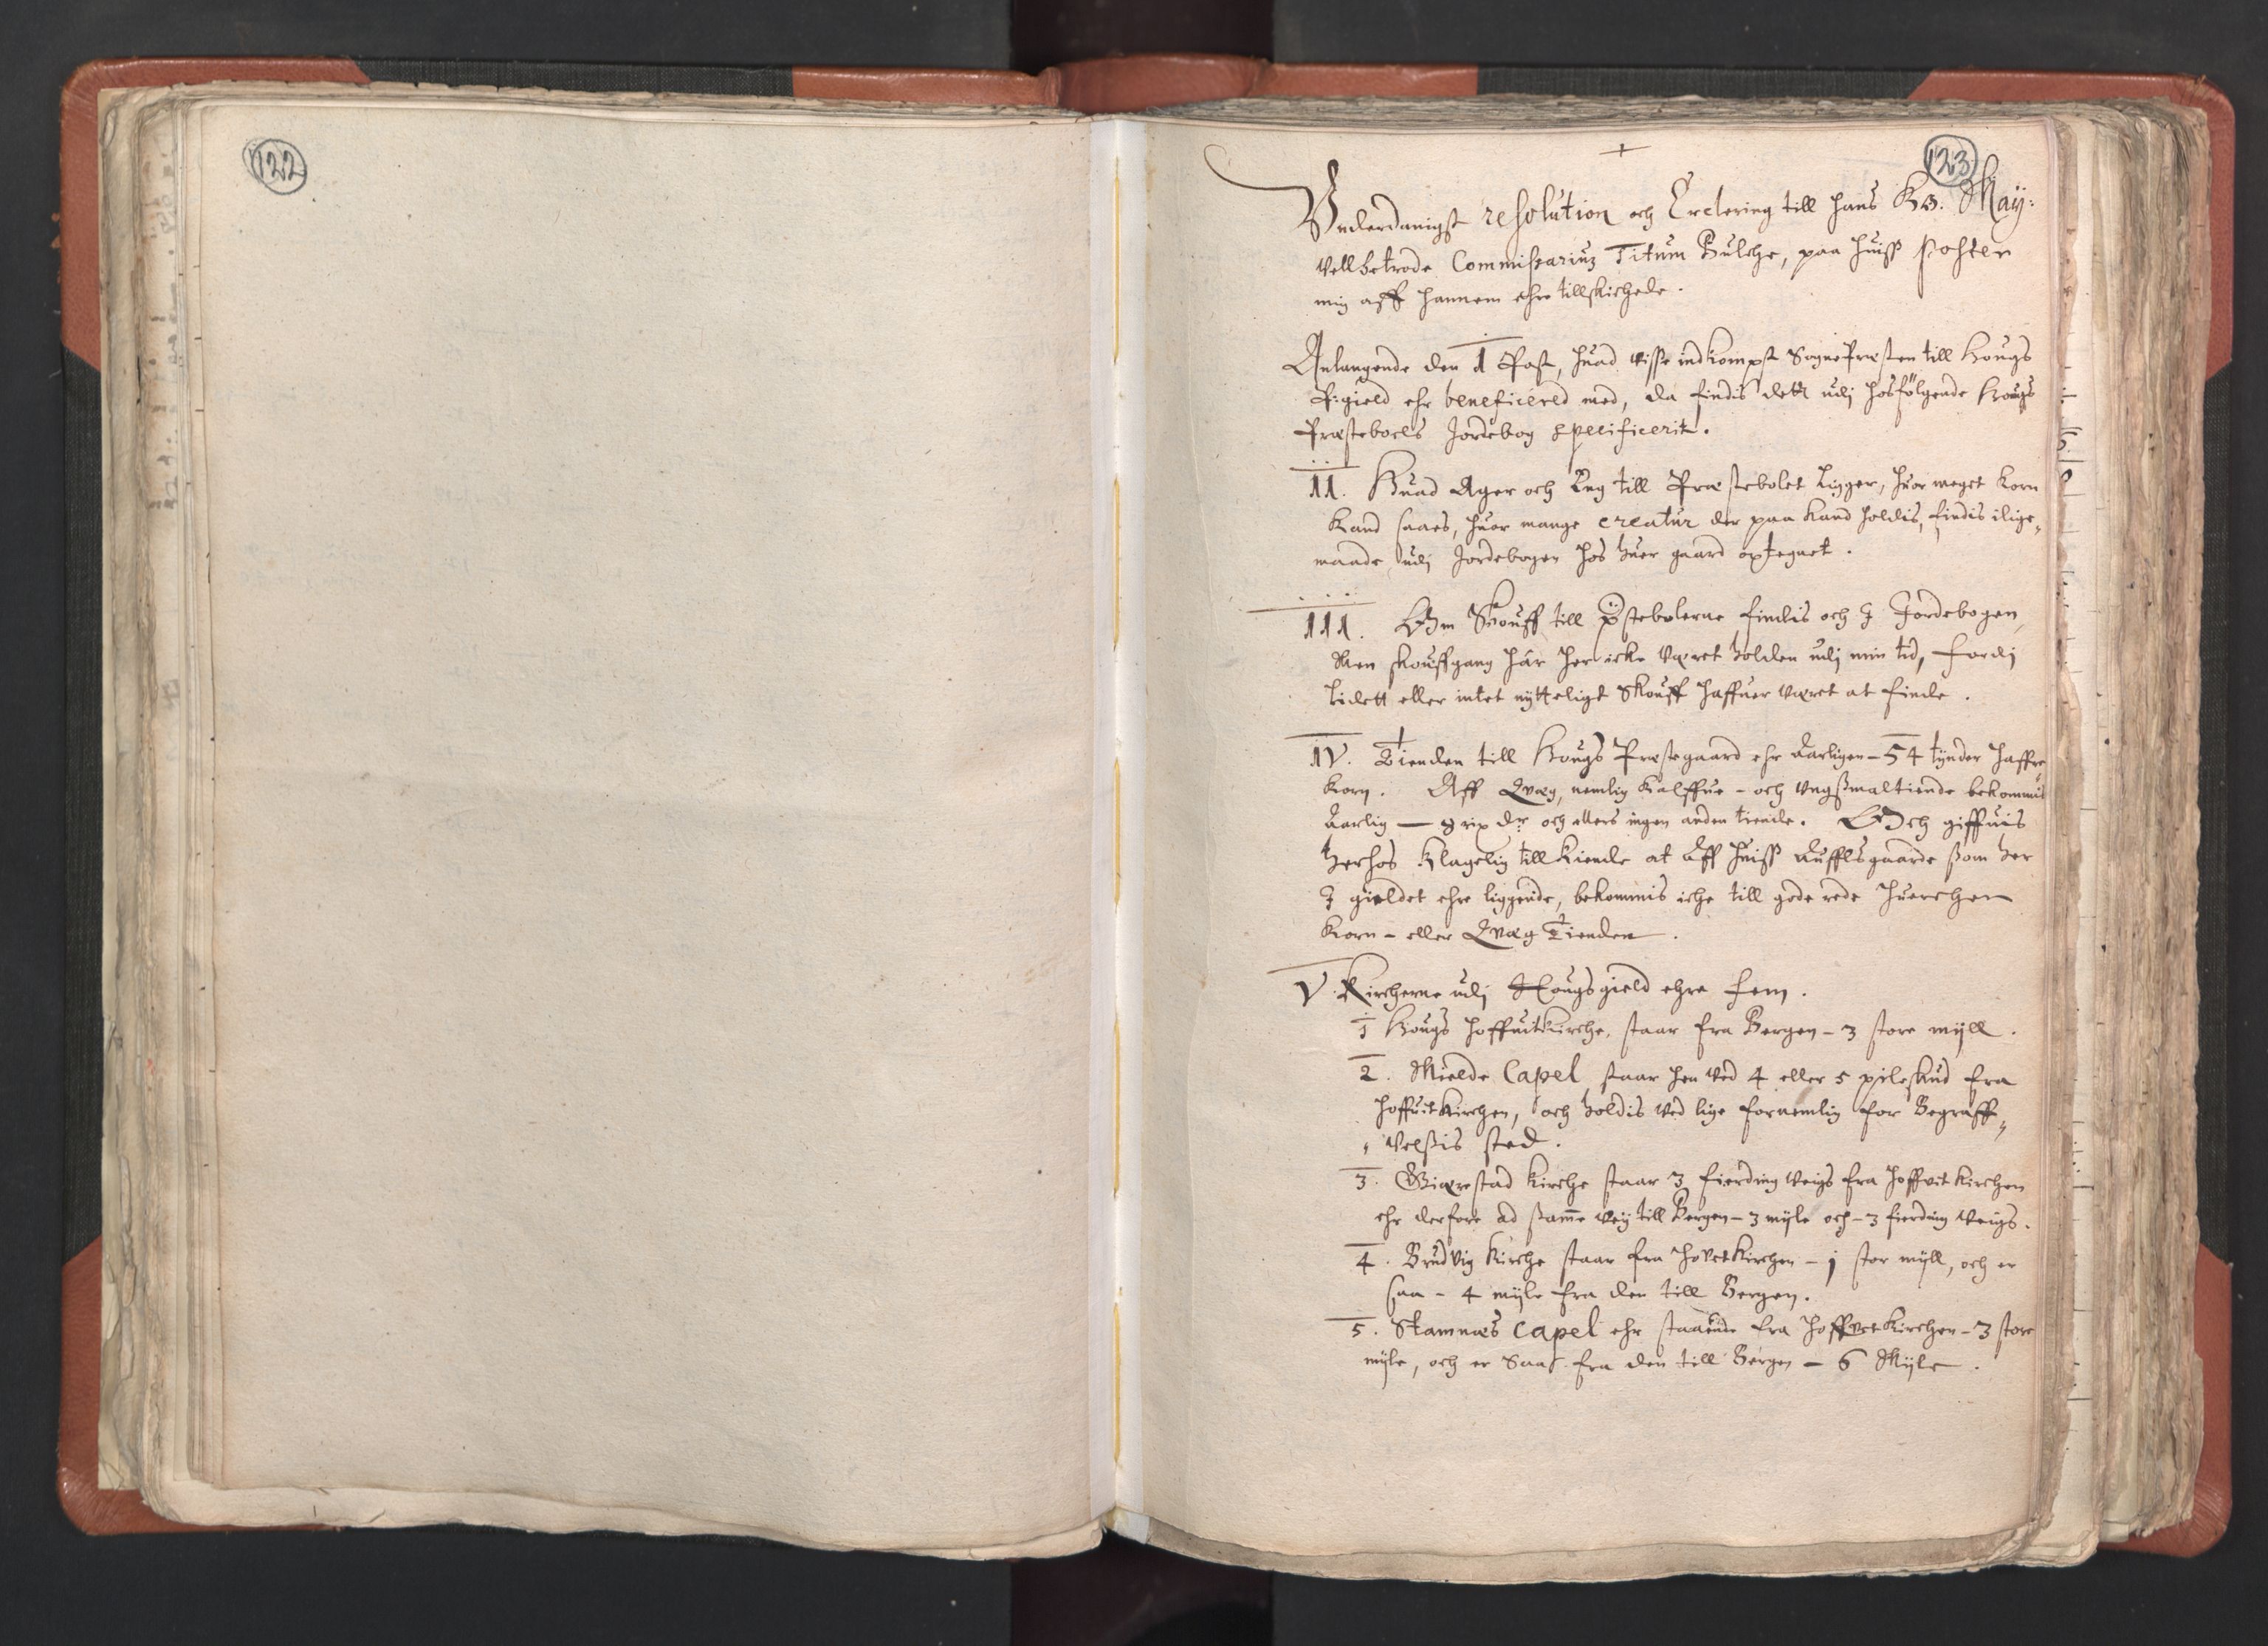 122
123
Vnderdanigst resolution och Erclering till hans Ko: May:
Vellbetrode Commissarius Titum Bulche, paa huiss poster
mig aff hannem ehre tillskichede.
Anlangende den 1 Post, huad visse indkompst SognePræsten till Hougs
P:gield ehr beneficered med, da findis dett udj hosfølgende Hougs
Præsteboels Jordebog specificerit.
II. Huad Ager och Eng till Præstebolet ligger, huor meget Korn
kand saaes, huor mange creatur der paa kand holdis, findis ilige,,
maade udj Jordebogen hos huer gaard optegnet.
III. Om Skouff till Pstebolerne findis och I Jordebogen,
Men skouffgang hår her icke været holden udj min tid, fordj
lidett eller intet nytteligt Skouff haffuer været at finde.
IV. Tienden till Hougs Præstegaard ehr Aarligen - 54 tynder haffre
korn. Aff Qvæg, nemlig Kalffue - och Vngssmaltiende bekommis
Aarlig — 8 rix dr. och ellers ingen anden tiende. Och giffuis
herhos klagelig tillkiende at aff huiss Auffelsgaarde som her
I gieldet ehre liggende, bekommis iche till gode rede huerchen
Korn - eller Qvæg Tienden.
V. Kircherne udj Hougsgield ehre fem.
1 Hougs hoffuitkirche, staar fra Bergen - 3 store myll.
2. Mielde Capel, staar hen ved 4 eller 5 pileskud fra
hoffuitkirchen, och holdis ved lige fornemlig for Begraff,,
,, velssis sted.
3. Giærstad kirche staar 3 fierding veigs fra hoffvitkirchen
ehr derfore ad samme vej till Bergen - 3 myle och - 3 fierding veigs.
4. Brudvig kirche staar fra hovetkirchen - 1 stor myll, och er
saa - 4 myle fra den till Bergen.
5. Stamnæs Capel ehr staaende fra hoffvetkirchen - 3 store
myle, och er saa fra den till Bergen - 6 Myle.